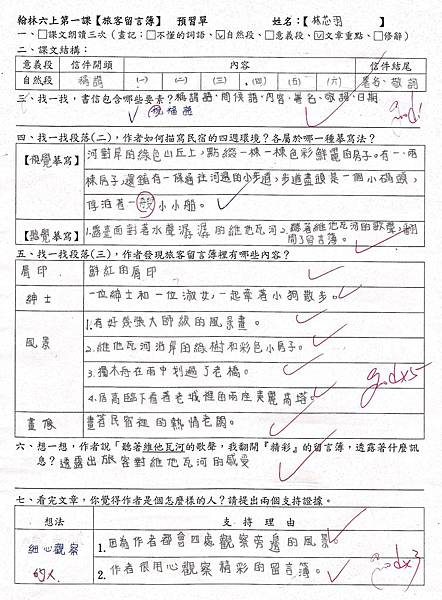 翰林六上第一課【旅客留言簿】 預習單 姓名:【林芯羽】
一、□課文朗讀三次(畫記:□不懂的詞語、☑自然段、□意義段、☑文章重點、□修辭)
二、課文結構:
意義段 信件開頭 內容 信件結尾
自然段 稱謂 (一) (二) (三) (四) (五) (六) 署名、敬詞
三、找一找,書信包含哪些要素?稱謂語、問候語、內容、署名、敬語、日期
祝福語
四、找一找段落(二),作者如何描寫民宿的四週環境?各屬於哪一種摹寫法?
【視覺摹寫】
河對岸的綠色山丘上,點綴一棟一棟色彩鮮麗的房子。有一、兩
棟房子,還鋪有一條通往河邊的小步道,步道盡頭是一個小碼頭,
停泊著一艘小小船。
【聽覺摹寫】 1.露臺面對著水聲潺潺的維他瓦河 2.聽著維他瓦河的歌聲,翻
開了留言簿。
五、找一找段落(三),作者發現旅客留言簿裡有哪些內容?
唇印 鮮紅的唇印
紳士 一位紳士和一位淑女,一起牽著小狗散步。
風景
1.有好幾張大師級的風景畫。
2.維他瓦河沿岸的綠樹和彩色小房子。
3.獨木舟在雨中划過了老橋。
4.居高臨下看著老城裡的兩座美麗高塔。
good x5
畫像 畫著民宿裡的熱情老闆。
六、想一想,作者說「聽著維他瓦河的歌聲,我翻開『精彩』的留言簿,透露著什麼訊
息?透露出旅客對維他瓦河的感受
七、看完文章,你覺得作者是個怎麼樣的人?請提出兩個支持證據。
想法 支持理由
細心觀察
的人
1.因為作者都會四處觀察旁邊的風景。
2.作者很用心觀察精彩的留言簿。
good x3